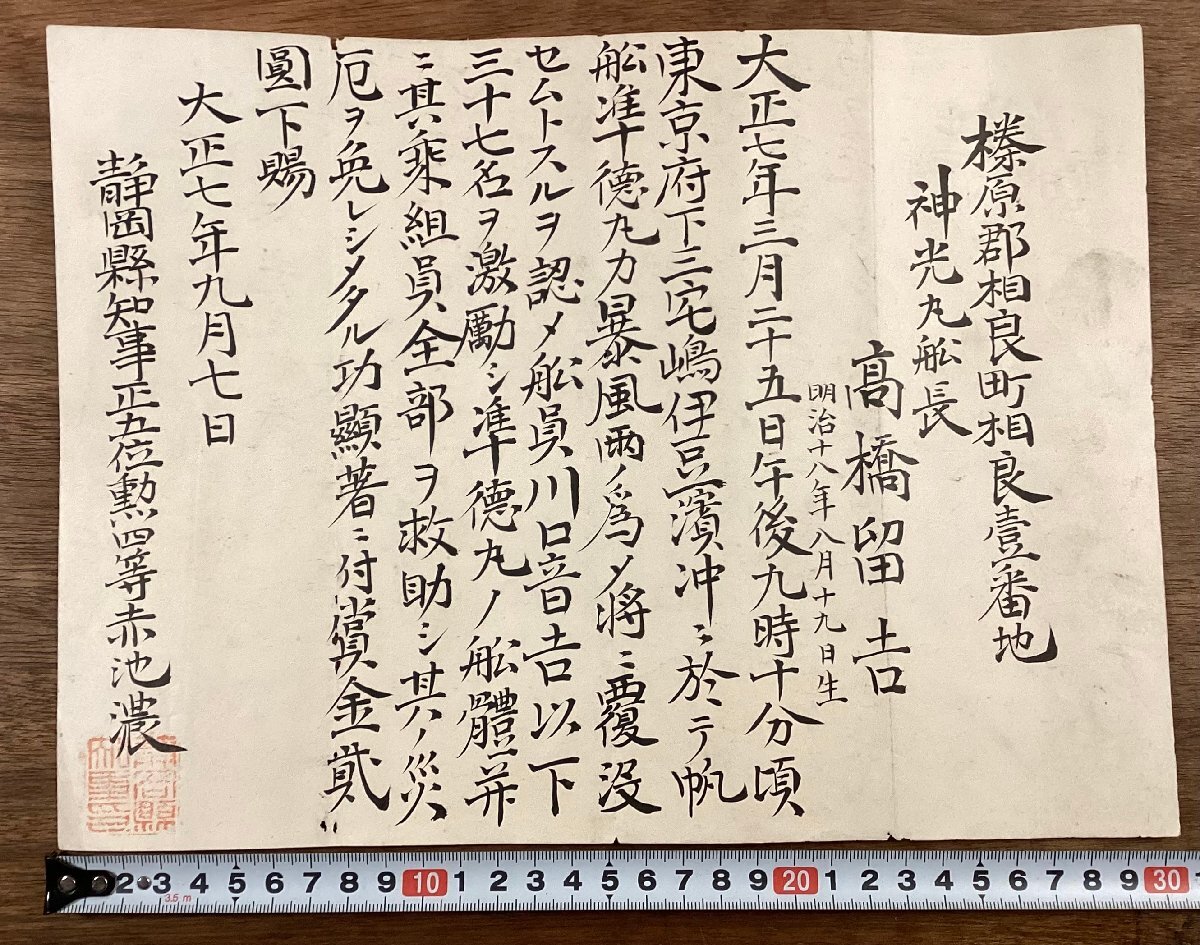 榛原郡相良町相良壹番地
神光丸船長
髙橋留吉
明治十八年八月十九日生
大正七年三月二十五日午後九時十分頃
東京府下三宅嶋伊豆濱冲ニ於テ帆
舩準徳丸カ暴風雨ノ爲メ將ニ覆没
セムトスルヲ認メ舩員川口音吉以下
三十七名ヲ激勵シ準徳丸ノ舩體并
ニ其乘組員全部ヲ救助シ其ノ災
厄ヲ免レシメタル功顯著ニ付賞金貳
圓下賜
大正七年九月七日
静岡縣知事正五位勲四等赤池濃
静岡縣知事印
2 3 4 5 6 7 8 9 10 1 2 3 4 5 6 7 8 9 20 1 2 3 4 5 6 7 8 9 30 1
3.5 m